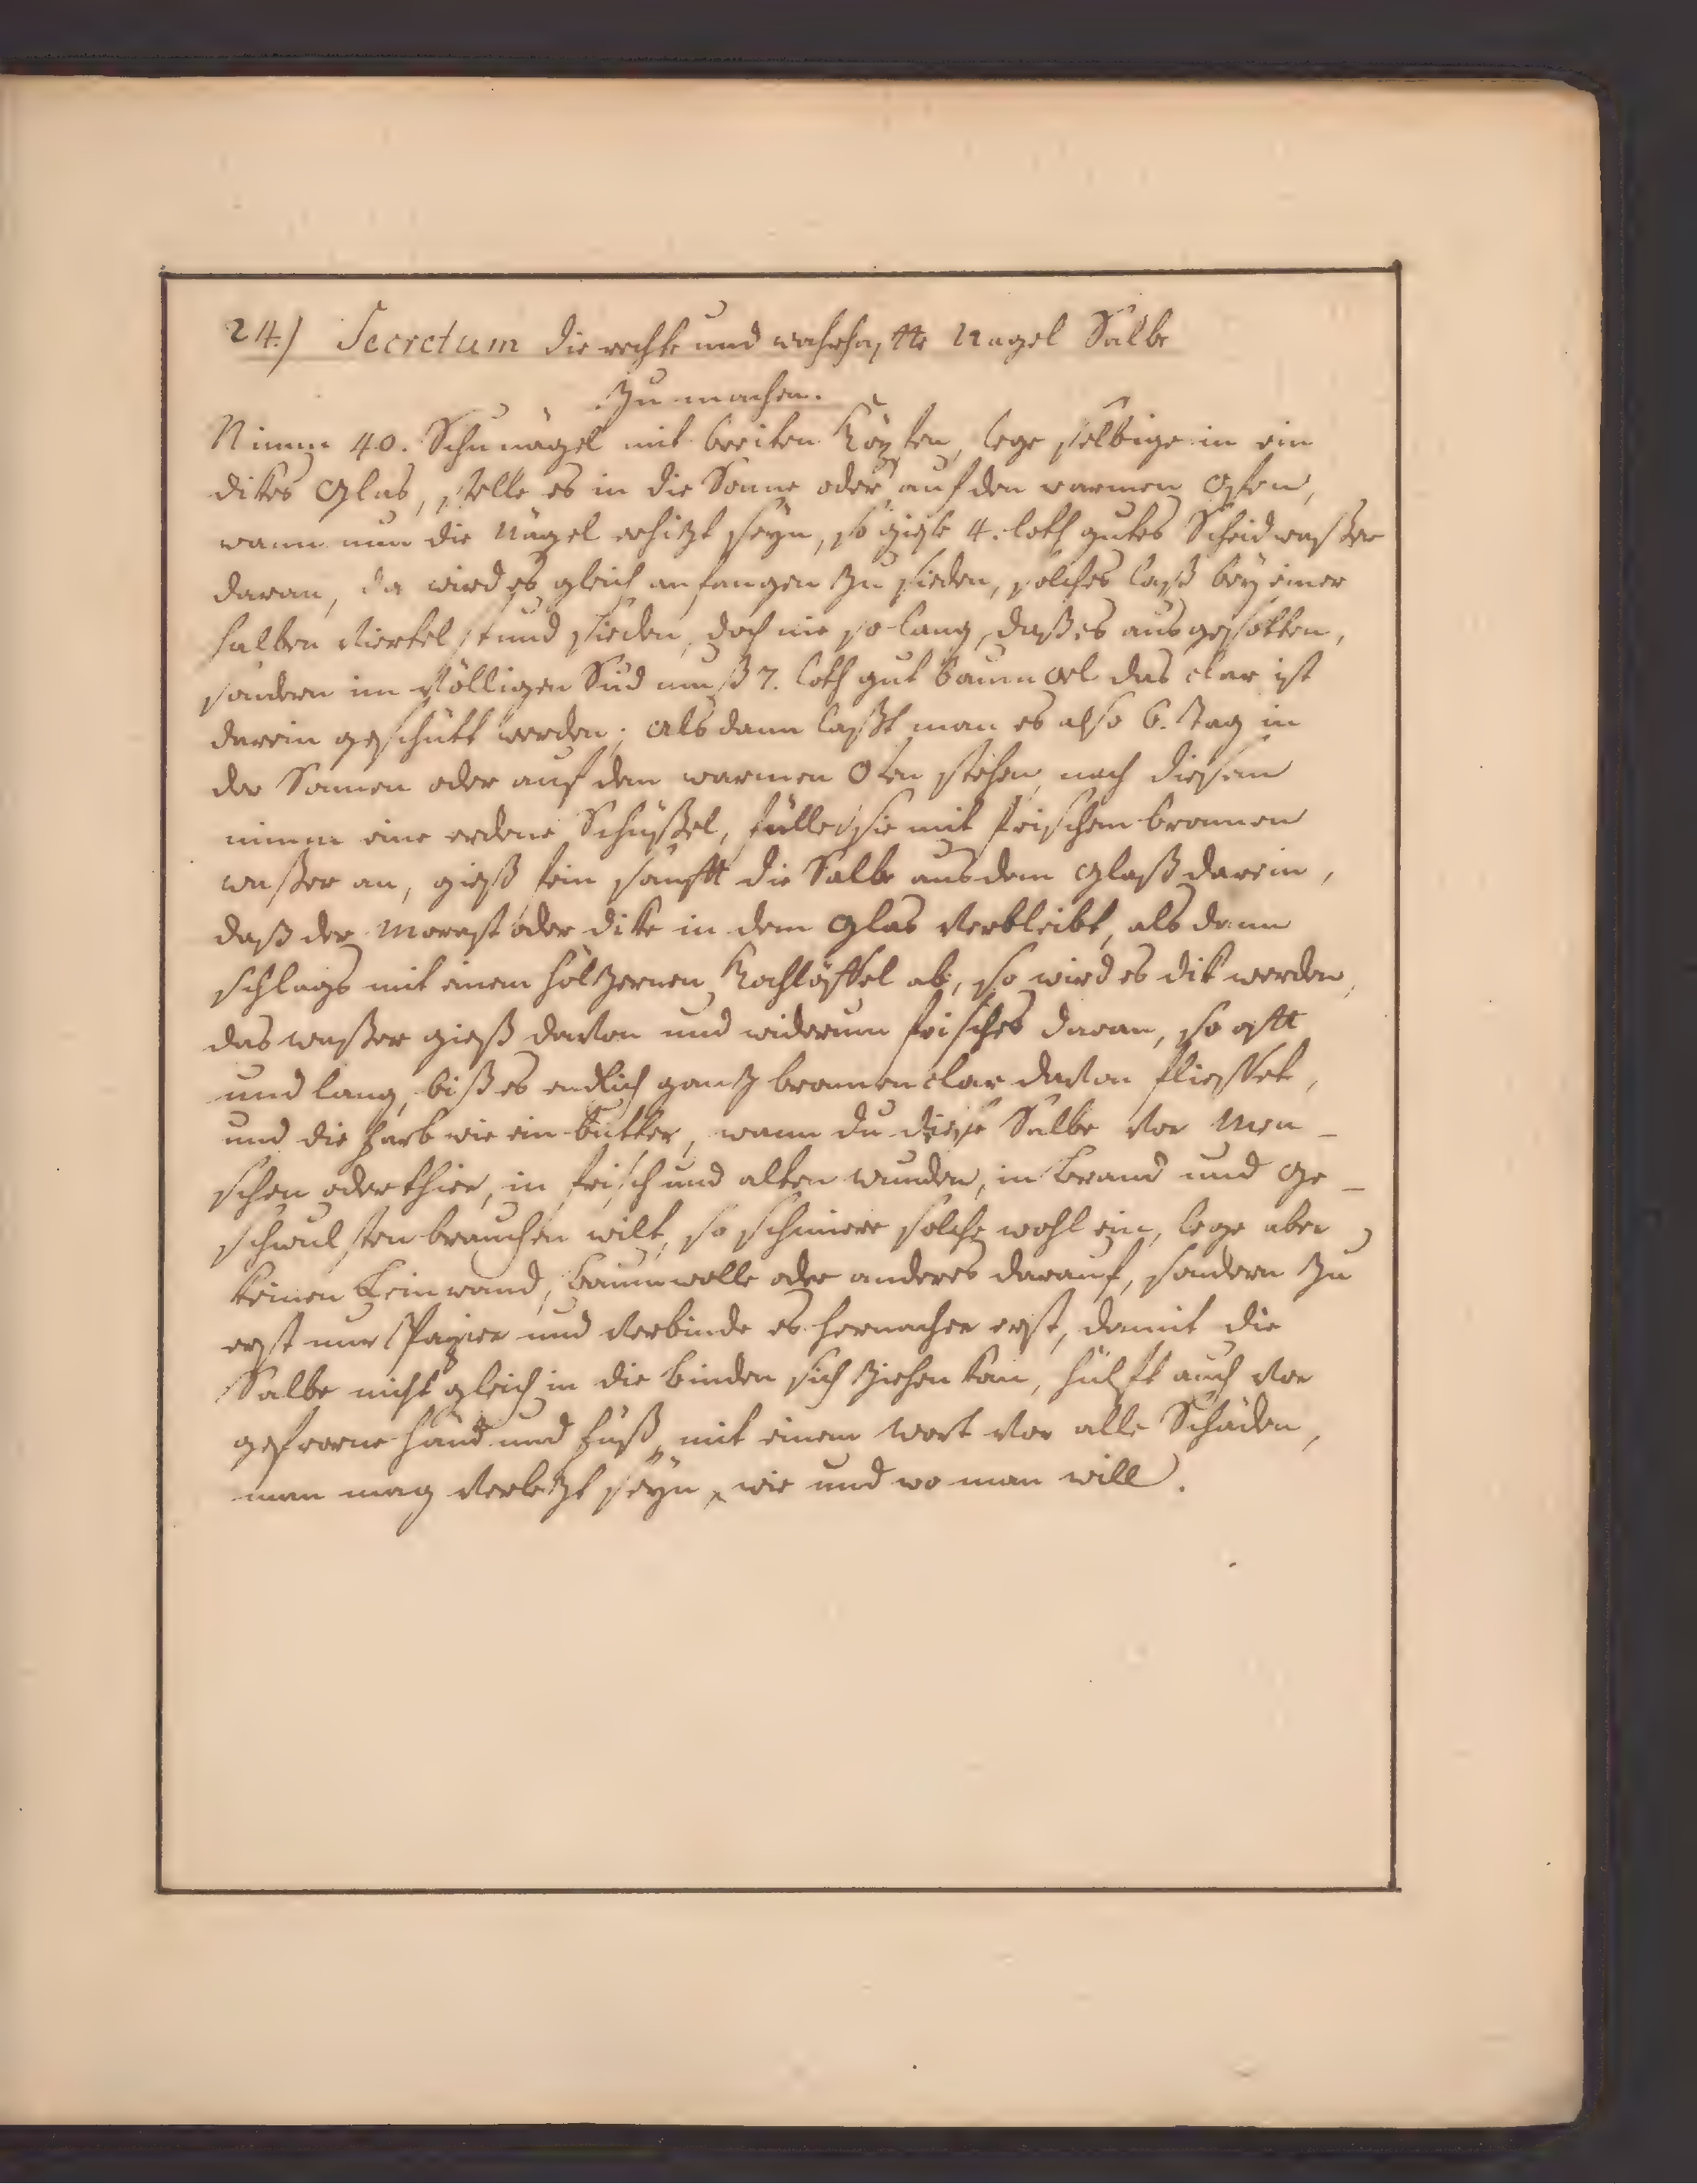 24.) Secretum die rechte und wahrhaffte Nagel Salbe
zu machen.
Nimm 40. Schunägel mit breiten Köpfen, lege selbige in ein
dikes Glas, stelle es in die Sonne oder auf den warmen Ofen,
wann nun die Nägel erhizt seyn, so giese 4. loth gutes Scheidwaßer
daran, da wird es gleich anfangen zu sieden, solches laß bey einer
halben Viertel stund sieden, doch nie so lang, daß es ausgesotten,
sondern im völligen Sud muß 7. loth gut baum oel das clar ist
darein geschütt werden; als dann laßt man es also 6. Tag in
der Sonnen oder auf dem warmen Ofen stehen, nach diesem
nimm eine erdene Schüßel, fülle sie mit frischem bronnen
waßer an, gieß fein sanfft die Salbe aus dem Glaß darein,
daß der Morast oder dike in dem Glas verbleibt, als dann
schlags mit einem höltzernen Kochlöffel ab, so wird es dik werden,
das waßer gieß davon und widerum frisches daran, so offt
und lang, biß es endlich gantz bronnen clar davon fliesset,
und die Farb wie ein butter, wann du diese Salbe vor Men-
schen oder thier, in frisch und alten wunden, in brand und Ge-
schwulsten brauchen wilt, so schmiere solche wohl ein, lege aber
keinen Leinwand, baumwolle oder anderes darauf, sondern zu
erst nur Papier und verbinde es hernacher erst, damit die
Salbe nicht gleich in die binden sich ziehen kan, hülft auch vor
gefrorne händ und Füß, mit einem wort vor alle Schäden,
man mag verletzt seyn, wie und wo man will.